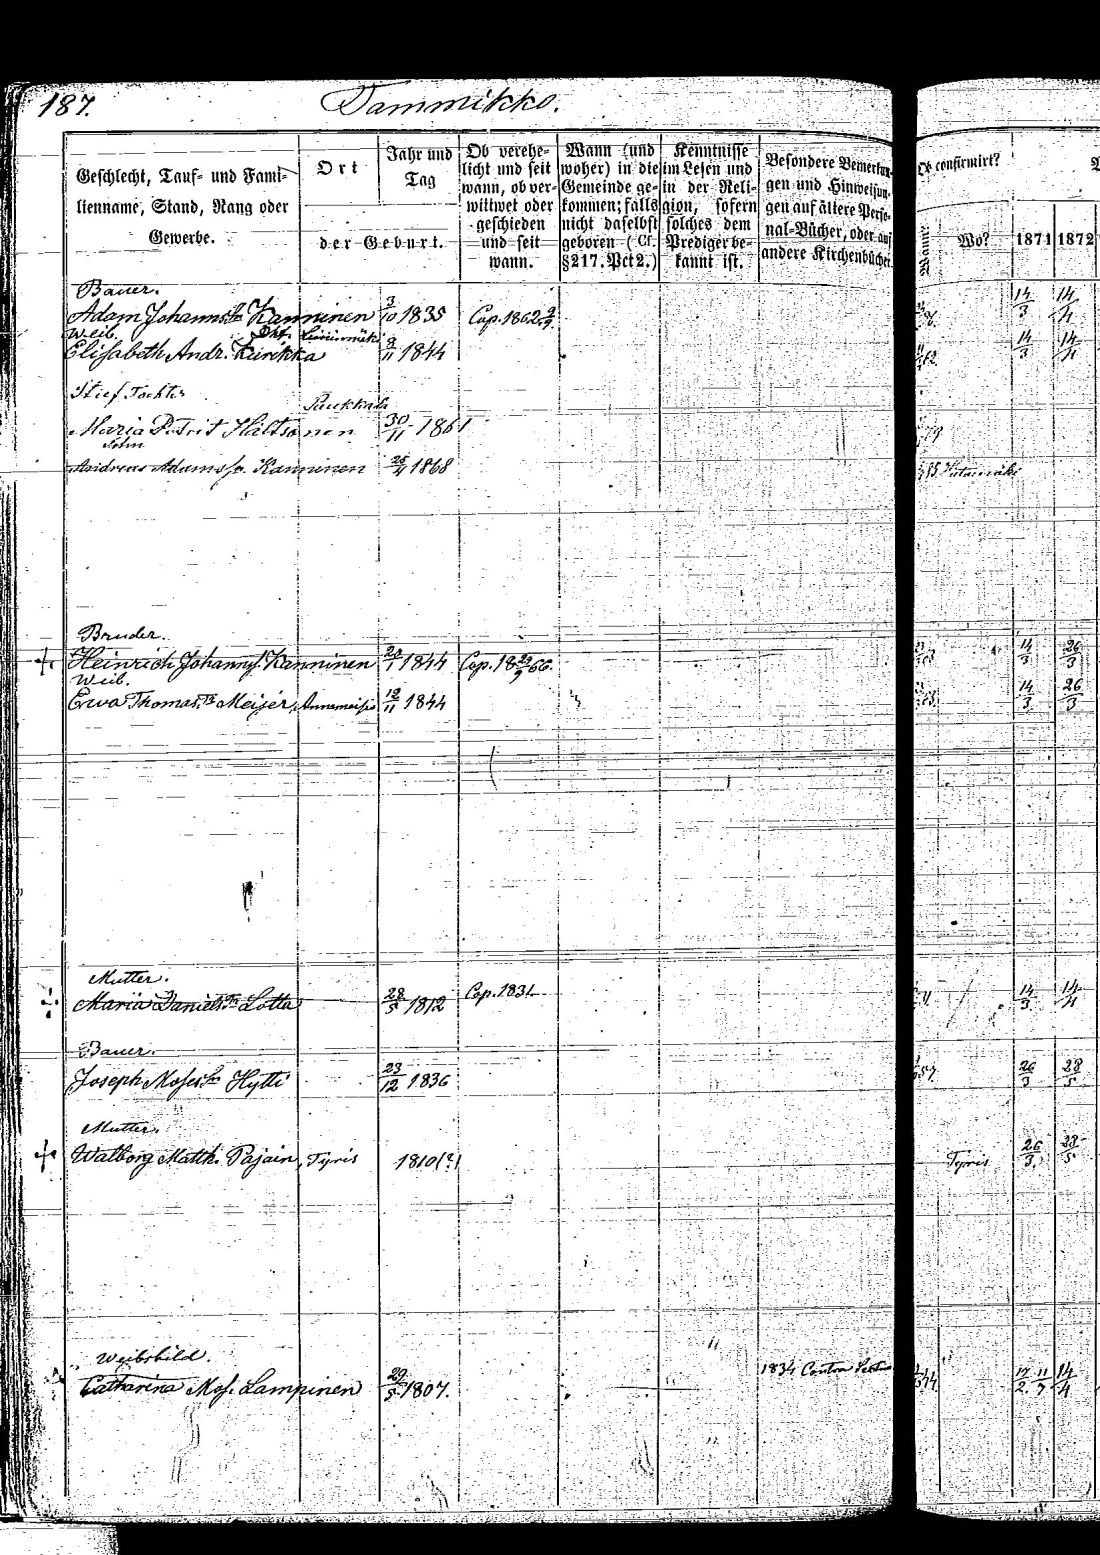 187.
Tammikko.
Geschlecht, Tauf- und Fami-
lienname, Stand, Rang oder
Gewerbe.
Ort
der Geburt.
Jahr und
Tag
Ob verehe-
licht und seit
wann, ob ver-
wittwet oder
geschieden
und seit
wann.
Wann (und
woher) in die
Gemeinde ge-
kommen; falls
nicht daselbst
geboren (Cf.
§217. Pct 2.)
Kenntnisse
im Lesen und
in der Reli-
gion, sofern
solches dem
Prediger be-
kannt ist.
Besondere Bemerkun-
gen und Hinweisun-
gen auf ältere Perso-
nal-Bücher, oder auf
andere Kirchenbücher.
Ob confirmirt?
Wann?
Wo?
1871
1872
Bauer.
Adam Johanns Sn Kanninen 3/10 1835 Cop. 1862 14/3 14/4
Weib.
Elisabeth Andr. 8/11 1844 14/3 14/4
Stief Tochter
Maria 30/11 1861
Sohn
Andreas Adams Sn. Kanninen 25/4 1868
Bruder.
Heinrich Johanns S. Kanninen 20/1 1844 Cop. 18 66. 14/3 26/3
Weib.
Ewa Thomas Tr. Meijer, 12/11 1844 14/3 26/3
Mutter.
Maria Daniels Tr Lotta 28/5 1812 Cop. 1831 14/3 14/4
Bauer.
Joseph Moses Sn Hytti 23/12 1836 57. 26/3 28/5
Mutter.
Walborg Matth. Pajain, Tyris 1810 (?) Tyris 26/3 28/5
Weibsbild.
Catharina Mos. Lampinen 29/5 1807. 1834 Contra 14/4